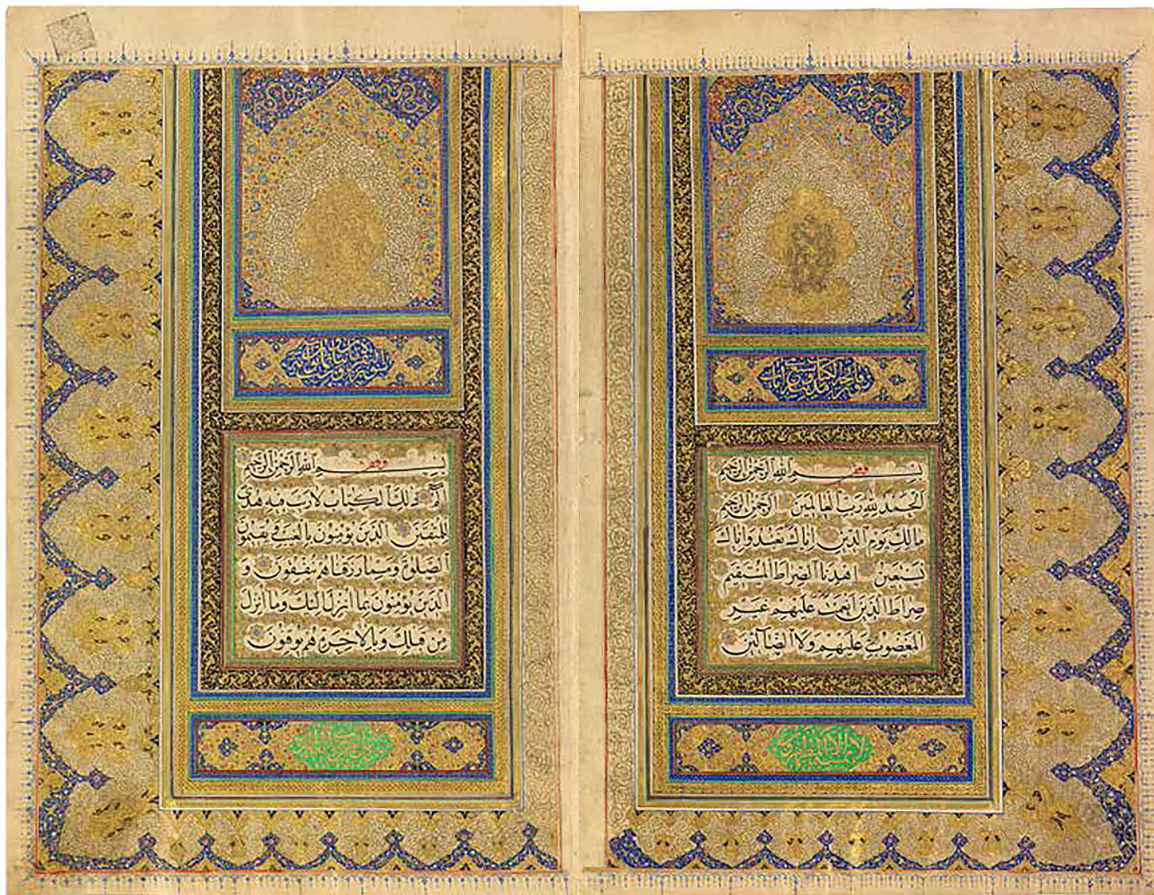 وقف
بسم الله الرحمن الرحيم
الحمد لله رب العالمين الرحمن الرحيم
مالك يوم الدين اياك نعبد واياك
نستعين اهدنا الصراط المستقيم
صراط الذين انعمت عليهم غير
المغضوب عليهم ولا الضالين
وقف
بسم الله الرحمن الرحيم
الم ذلك الكتاب لا ريب فيه هدى
للمتقين الذين يؤمنون بالغيب ويقيمون
الصلوة ومما رزقناهم ينفقون و
الذين يؤمنون بما انزل اليك وما انزل
من قبلك وبالاخرة هم يوقنون